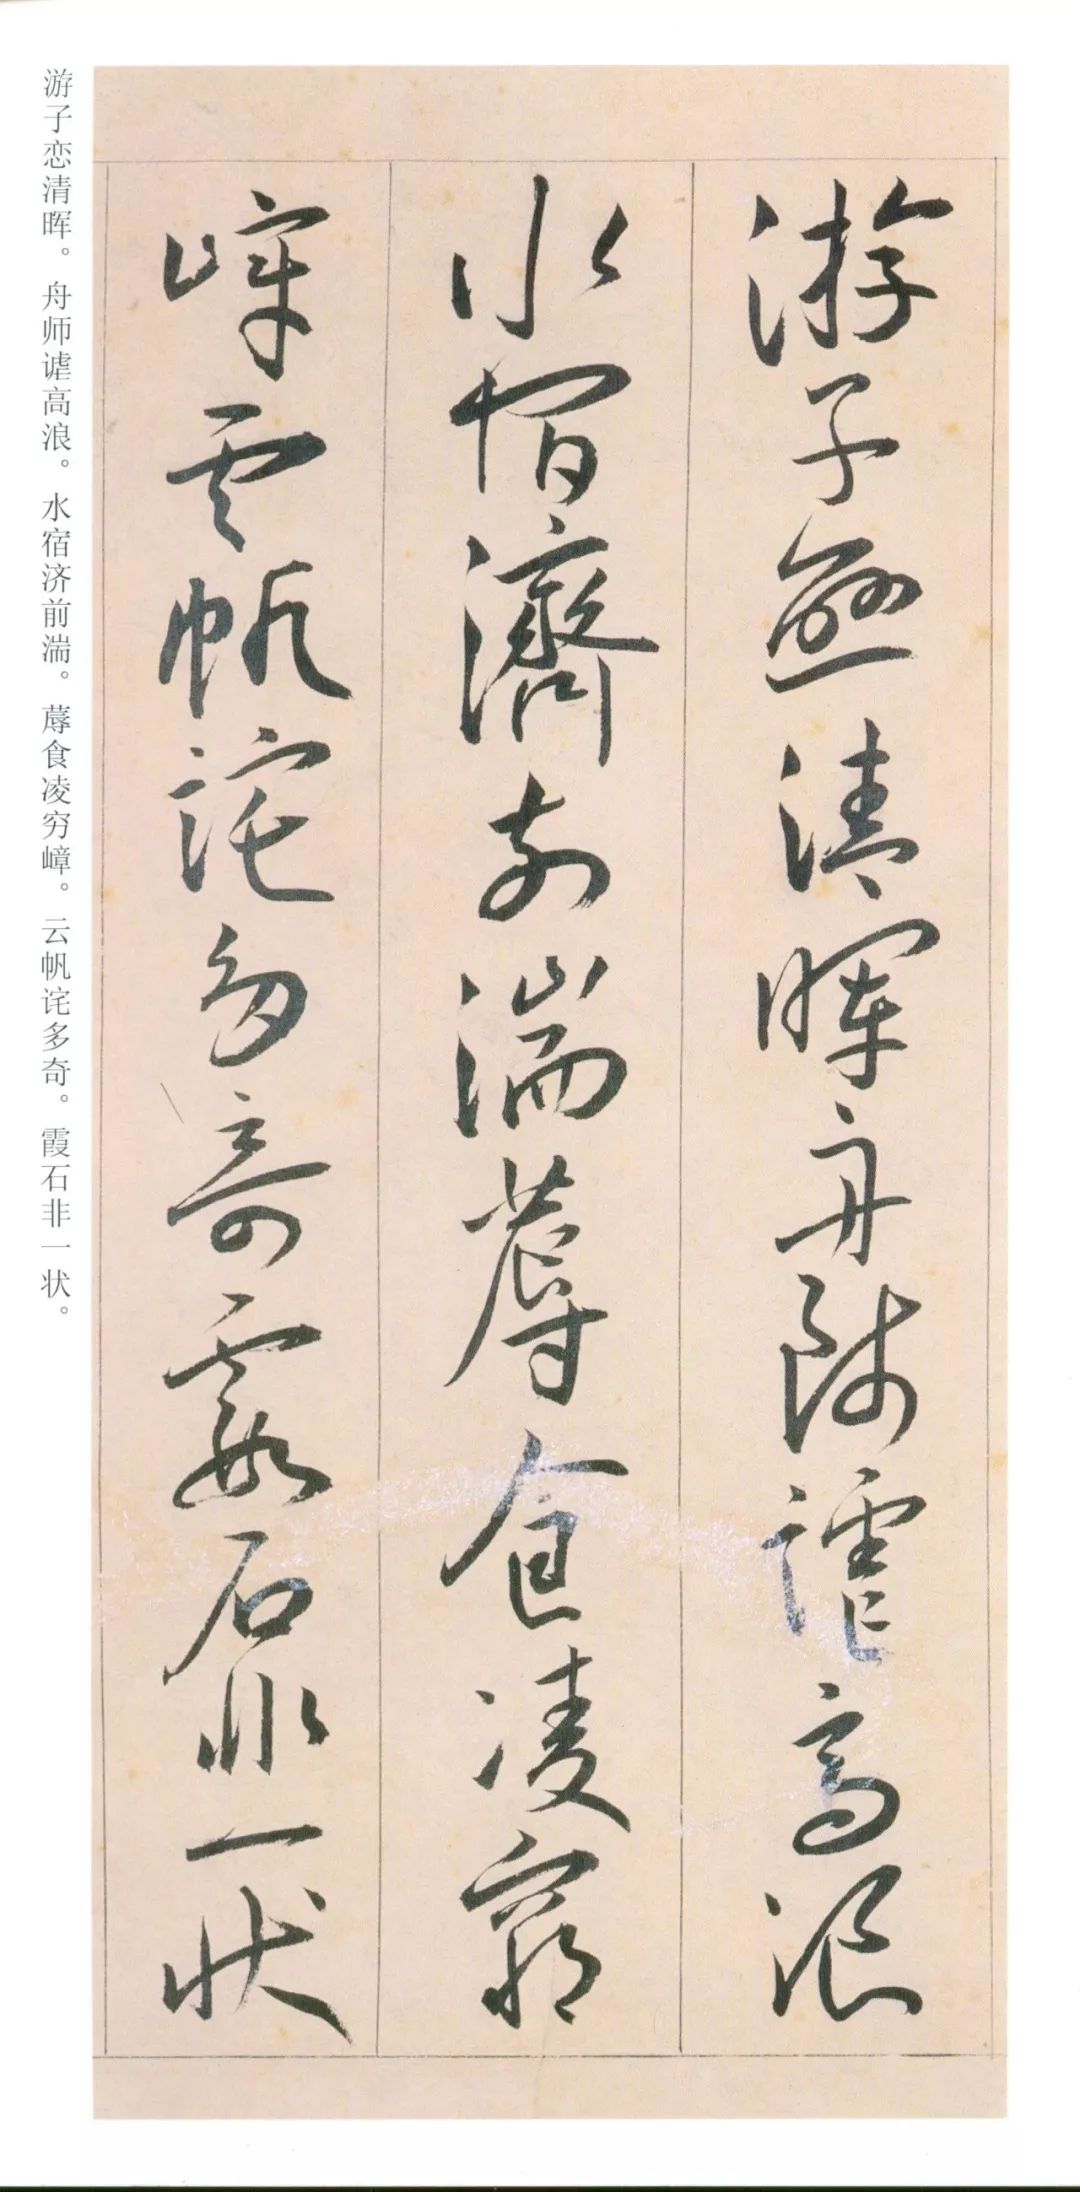 游子戀清暉舟師謔高浪
水宿濟前湍蓐食凌窮
嶂雲帆詫多奇霞石非一狀
游子恋清晖。舟师谑高浪。水宿济前湍。蓐食凌穷嶂。云帆诧多奇。霞石非一状。